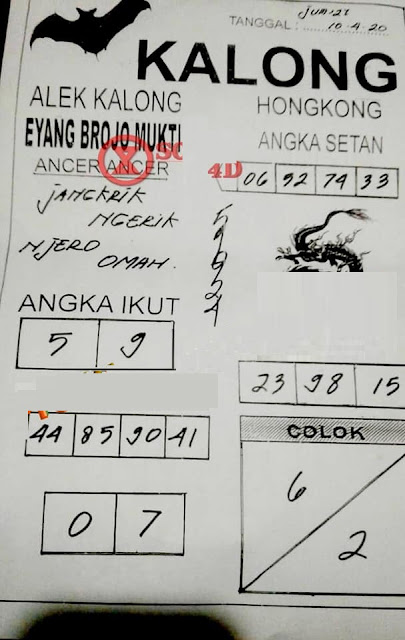 Jum'at
TANGGAL : 10-4-20
KALONG
ALEK KALONG
EYANG BROJO MUKTI
ANCER ANCER
JANGKRIK
NGERIK
NJERO
OMAH.
HONGKONG
ANGKA SETAN
4D
06 92 74 33
5
9
2
4
ANGKA IKUT
5 9
44 85 90 41
0 7
23 98 15
COLOK
6
2